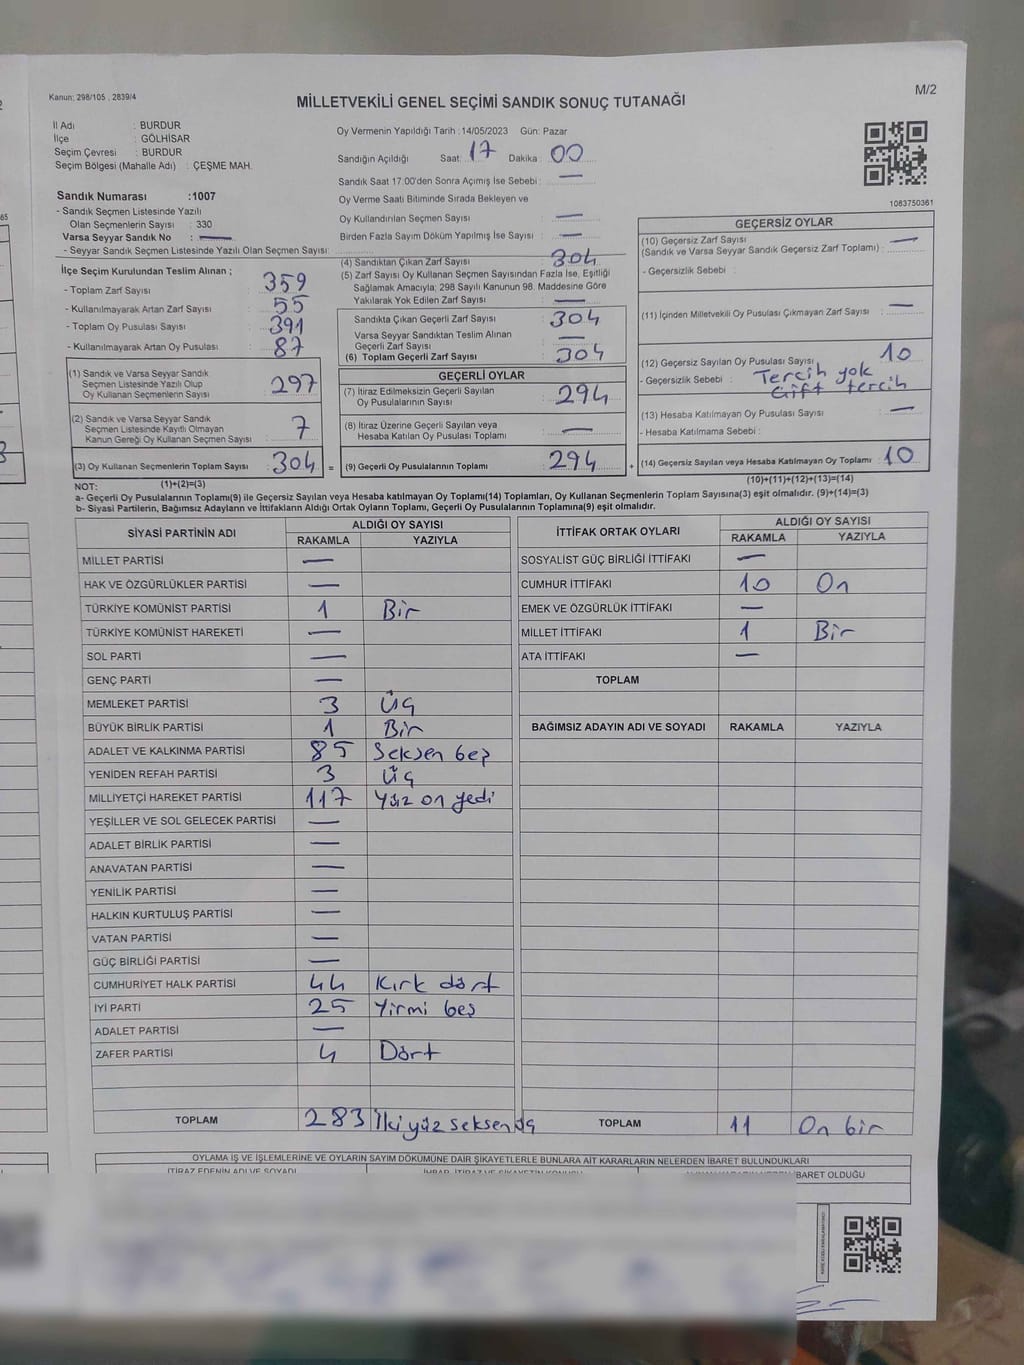 Kanun: 298/105 , 2839/4
M/2
MİLLETVEKİLİ GENEL SEÇİMİ SANDIK SONUÇ TUTANAĞI
İl Adı : BURDUR
İlçe : GÖLHİSAR
Seçim Çevresi : BURDUR
Seçim Bölgesi (Mahalle Adı) : ÇEŞME MAH.
Sandık Numarası :1007
- Sandık Seçmen Listesinde Yazılı
Olan Seçmenlerin Sayısı : 330
Varsa Seyyar Sandık No : —
- Seyyar Sandık Seçmen Listesinde Yazılı Olan Seçmen Sayısı:
Oy Vermenin Yapıldığı Tarih :14/05/2023 Gün: Pazar
Sandığın Açıldığı Saat: 17 Dakika : 00
Sandık Saat 17:00'den Sonra Açımış İse Sebebi : —
Oy Verme Saati Bitiminde Sırada Bekleyen ve
Oy Kullandırılan Seçmen Sayısı : —
Birden Fazla Sayım Döküm Yapılmış İse Sayısı : —
1083750361
İlçe Seçim Kurulundan Teslim Alınan ;
- Toplam Zarf Sayısı : 359
- Kullanılmayarak Artan Zarf Sayısı : 55
- Toplam Oy Pusulası Sayısı : 391
- Kullanılmayarak Artan Oy Pusulası : 87
(1) Sandık ve Varsa Seyyar Sandık
Seçmen Listesinde Yazılı Olup
Oy Kullanan Seçmenlerin Sayısı : 297
(2) Sandık ve Varsa Seyyar Sandık
Seçmen Listesinde Kayıtlı Olmayan
Kanun Gereği Oy Kullanan Seçmen Sayısı : 7
(3) Oy Kullanan Seçmenlerin Toplam Sayısı : 304 =
(4) Sandıktan Çıkan Zarf Sayısı : 304
(5) Zarf Sayısı Oy Kullanan Seçmen Sayısından Fazla İse, Eşitliği
Sağlamak Amacıyla; 298 Sayılı Kanunun 98. Maddesine Göre
Yakılarak Yok Edilen Zarf Sayısı : —
Sandıkta Çıkan Geçerli Zarf Sayısı : 304
Varsa Seyyar Sandıktan Teslim Alınan
Geçerli Zarf Sayısı : —
(6) Toplam Geçerli Zarf Sayısı : 304
GEÇERLİ OYLAR
(7) İtiraz Edilmeksizin Geçerli Sayılan
Oy Pusulalarının Sayısı : 294
(8) İtiraz Üzerine Geçerli Sayılan veya
Hesaba Katılan Oy Pusulası Toplamı : —
(9) Geçerli Oy Pusulalarının Toplamı : 294 +
GEÇERSİZ OYLAR
(10) Geçersiz Zarf Sayısı
(Sandık ve Varsa Seyyar Sandık Geçersiz Zarf Toplamı) : —
- Geçersizlik Sebebi :
(11) İçinden Milletvekili Oy Pusulası Çıkmayan Zarf Sayısı : —
(12) Geçersiz Sayılan Oy Pusulası Sayısı : 10
- Geçersizlik Sebebi : Tercih yok
Çift tercih
(13) Hesaba Katılmayan Oy Pusulası Sayısı : —
- Hesaba Katılmama Sebebi :
(14) Geçersiz Sayılan veya Hesaba Katılmayan Oy Toplamı : 10
(10)+(11)+(12)+(13)=(14)
NOT: (1)+(2)=(3)
a- Geçerli Oy Pusulalarının Toplamı(9) ile Geçersiz Sayılan veya Hesaba katılmayan Oy Toplamı(14) Toplamları, Oy Kullanan Seçmenlerin Toplam Sayısına(3) eşit olmalıdır. (9)+(14)=(3)
b- Siyasi Partilerin, Bağımsız Adayların ve İttifakların Aldığı Ortak Oyların Toplamı, Geçerli Oy Pusulalarının Toplamına(9) eşit olmalıdır.
SİYASİ PARTİNİN ADI ALDIĞI OY SAYISI
RAKAMLA YAZIYLA
MİLLET PARTİSİ —
HAK VE ÖZGÜRLÜKLER PARTİSİ —
TÜRKİYE KOMÜNİST PARTİSİ 1 Bir
TÜRKİYE KOMÜNİST HAREKETİ —
SOL PARTİ —
GENÇ PARTİ —
MEMLEKET PARTİSİ 3 Üç
BÜYÜK BİRLİK PARTİSİ 1 Bir
ADALET VE KALKINMA PARTİSİ 85 Seksen beş
YENİDEN REFAH PARTİSİ 3 Üç
MİLLİYETÇİ HAREKET PARTİSİ 117 Yüz on yedi
YEŞİLLER VE SOL GELECEK PARTİSİ —
ADALET BİRLİK PARTİSİ —
ANAVATAN PARTİSİ —
YENİLİK PARTİSİ —
HALKIN KURTULUŞ PARTİSİ —
VATAN PARTİSİ —
GÜÇ BİRLİĞİ PARTİSİ —
CUMHURİYET HALK PARTİSİ 44 Kırk dört
İYİ PARTİ 25 Yirmi beş
ADALET PARTİSİ —
ZAFER PARTİSİ 4 Dört
TOPLAM 283 İki yüz seksen üç
İTTİFAK ORTAK OYLARI ALDIĞI OY SAYISI
RAKAMLA YAZIYLA
SOSYALİST GÜÇ BİRLİĞİ İTTİFAKI —
CUMHUR İTTİFAKI 10 On
EMEK VE ÖZGÜRLÜK İTTİFAKI —
MİLLET İTTİFAKI 1 Bir
ATA İTTİFAKI —
TOPLAM
BAĞIMSIZ ADAYIN ADI VE SOYADI RAKAMLA YAZIYLA
TOPLAM 11 On bir
OYLAMA İŞ VE İŞLEMLERİNE VE OYLARIN SAYIM DÖKÜMÜNE DAİR ŞİKAYETLERLE BUNLARA AİT KARARLARIN NELERDEN İBARET BULUNDUKLARI
İTİRAZ EDENİN ADI VE SOYADI
İBARET OLDUĞU